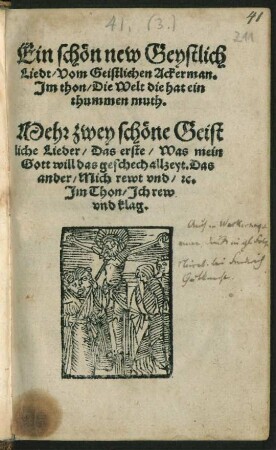 41. (3.)
41
211
Ein schön new Geystlich
Liedt/Vom Geistlichen Ackerman.
Im thon/Die Welt die hat ein
thummen muth.
Mehr zwey schöne Geist
liche Lieder/Das erste/Was mein
Gott will das geschech allzeyt. Das
ander/Mich rewt vnd/ꝛc.
Im Thon/Ich rew
vnd klag.
Auch